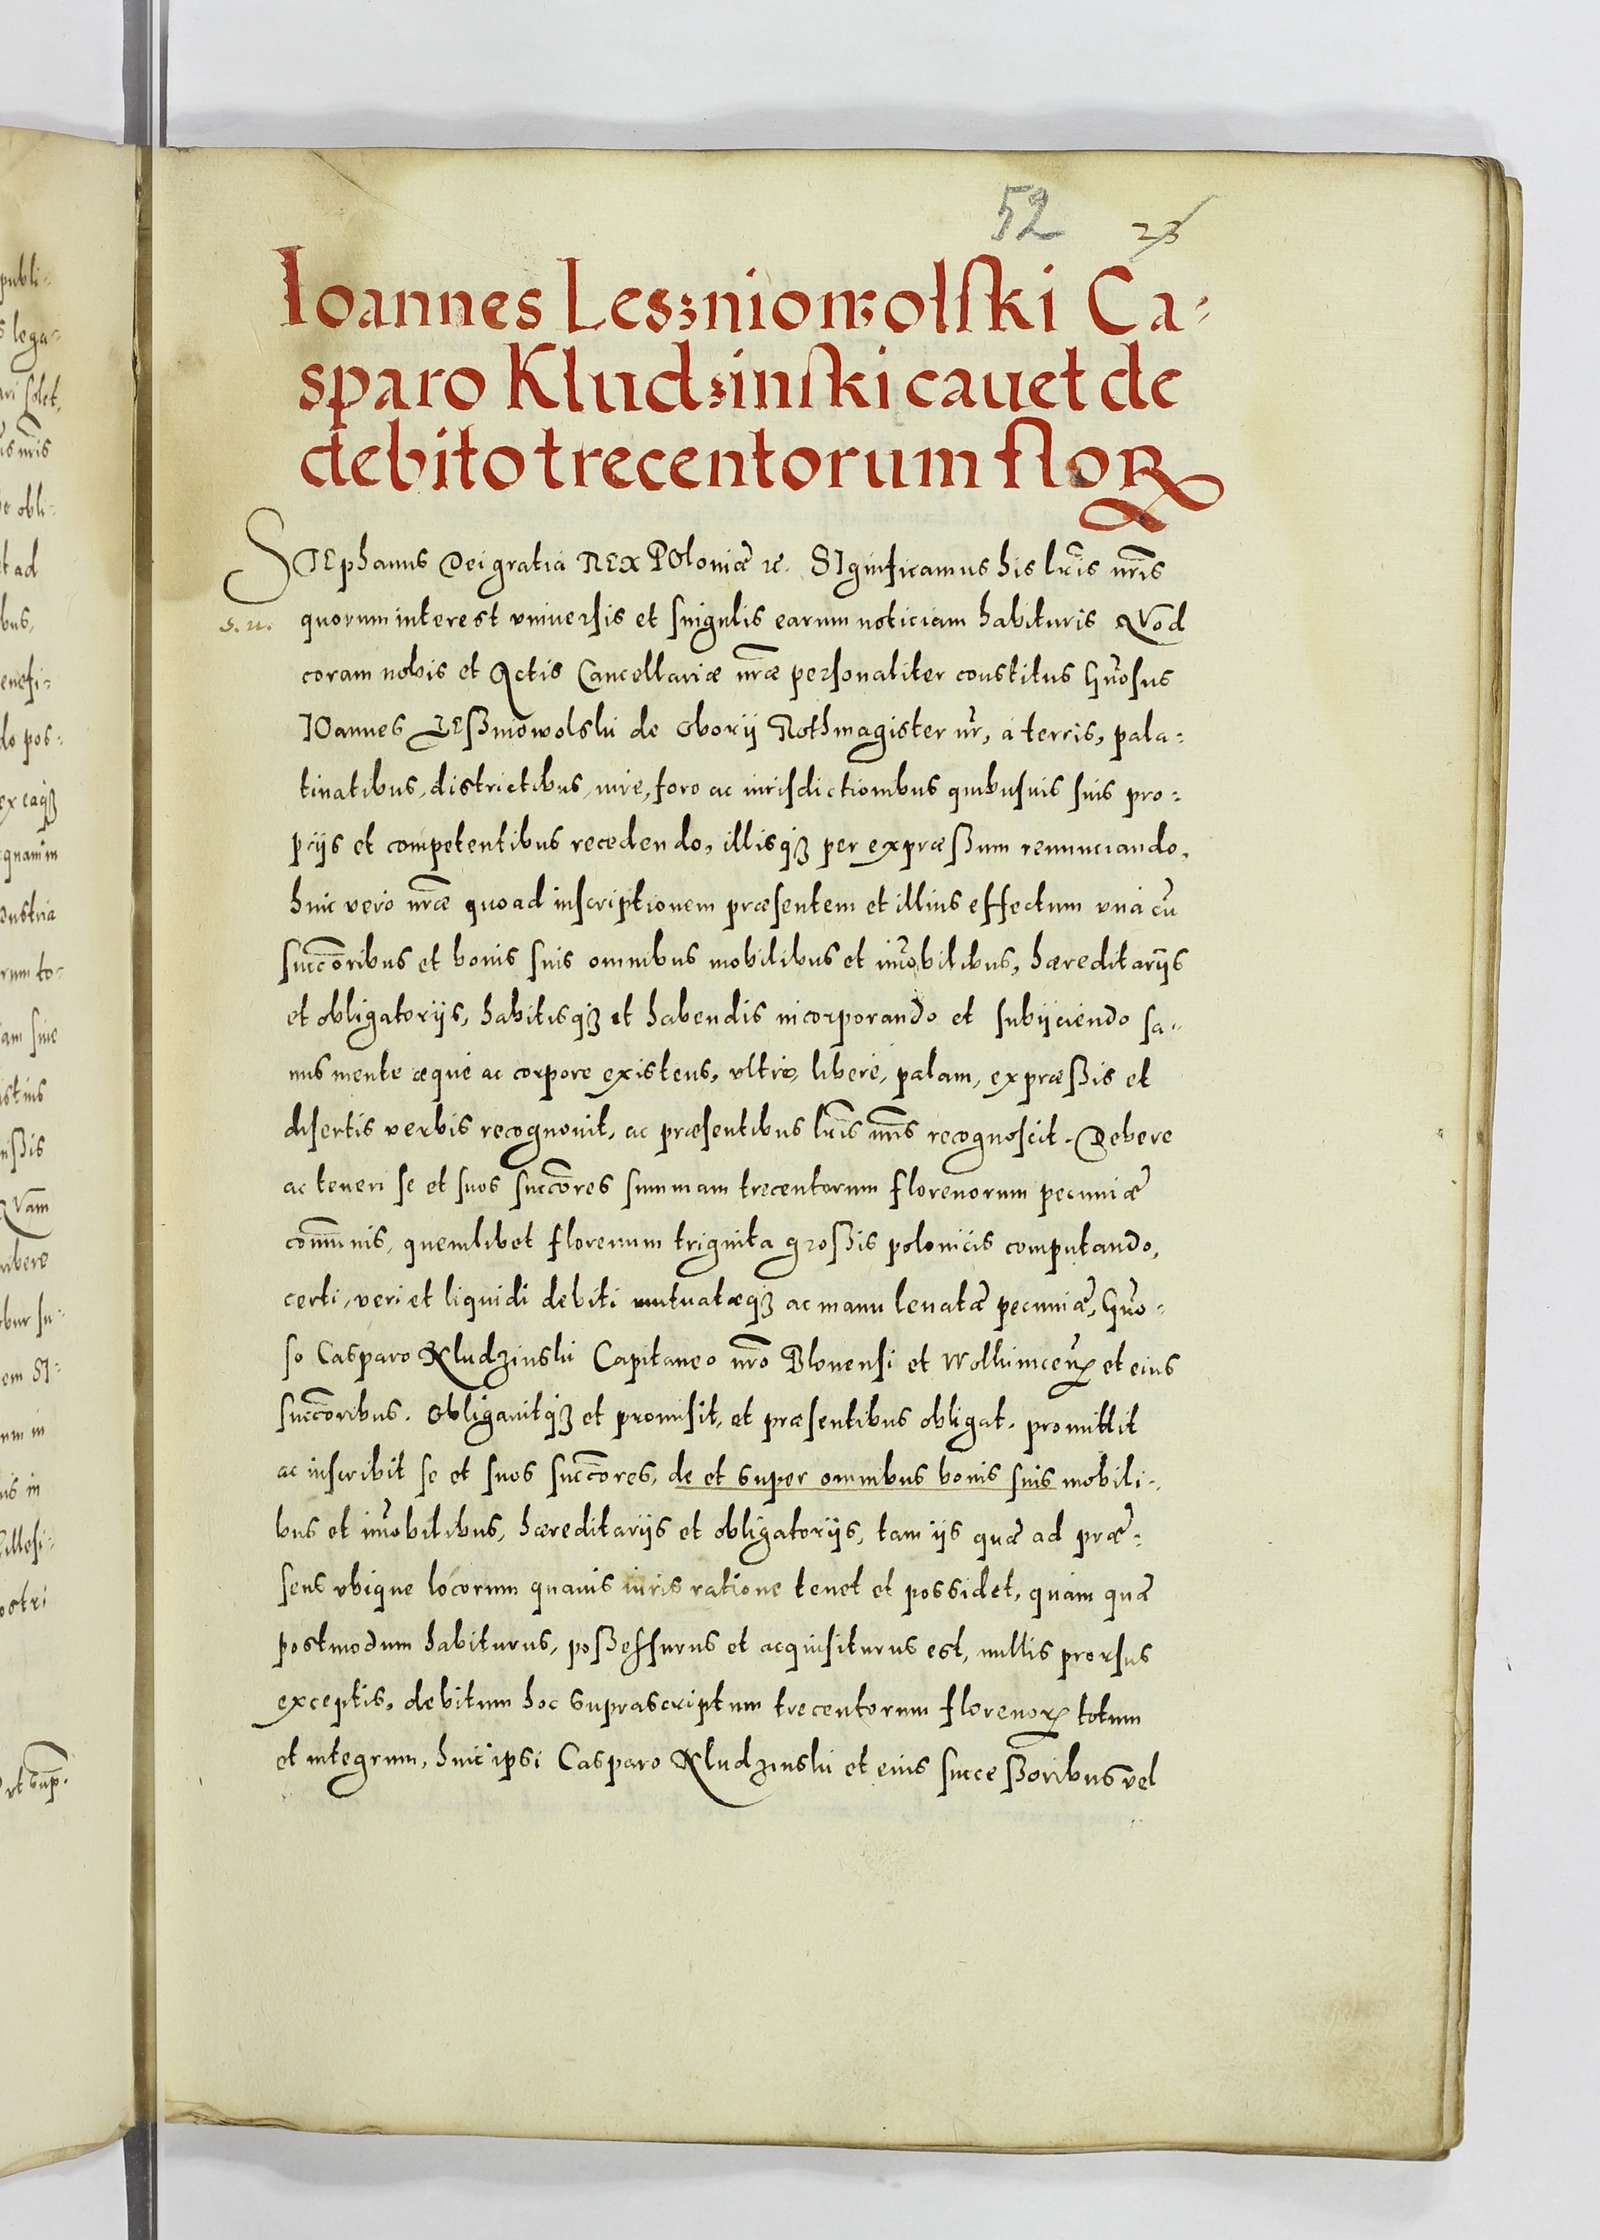 52 23
Ioannes Leszniowolski Ca-
sparo Kludzinski cauet de
debito trecentorum floR
STEphanus Dei gratia REX POloniæ &c. SIgnificamus his lr̃is nr̃is
quorum interest vniuersis et singulis earum noticiam habituris QVod
coram nobis et Actis Cancellariæ nr̃æ personaliter constitus Gnõsus
IOannes LEßniowolski de Oborij Rothmagister nr̃, à terris, pala-
tinatibus, districtibus, iure, foro ac iurisdictionibus quibusuis suis pro-
prijs et competentibus recedendo, illisq₃ per expræßum renunciando,
huic vero nr̃æ quo ad inscriptionem præsentem et illius effectum vnà cũ
succõribus et bonis suis omnibus mobilibus et im̃obilibus, hæreditarijs
et obligatorijs, habitisq₃ et habendis incorporando et subijciendo sa-
nus mente æque ac corpore existens, vltro, liberè, palam, expræßis et
disertis verbis recognouit, ac præsentibus lr̃is nr̃is recognoscit. Debere
ac teneri se et suos succõres summam trecentorum florenorum pecuniæ
com̃unis, quemlibet florenum triginta großis polonicis computando,
certi, veri et liquidi debiti mutuatæq₃ ac manu leuatæ pecuniæ, Gnõ-
so Casparo Kludzinski Capitaneo nr̃o Blonensi et Wolkinicen̄ et eius
succõribus. Obligauitq₃ et promisit, et præsentibus obligat, promittit
ac inscribit se et suos succõres, de et super omnibus bonis suis mobili-
bus et im̃obilibus, hæreditarijs et obligatorijs, tam ijs quæ ad præ-
sens vbique locorum quauis iuris ratione tenet et possidet, quàm quæ
postmodum habiturus, poßessurus et acquisiturus est, nullis prorsus
exceptis, debitum hoc suprascriptum trecentorum florenoꝝ totum
et integrum, huic ipsi Casparo Kludzinski et eius succeßoribus vel